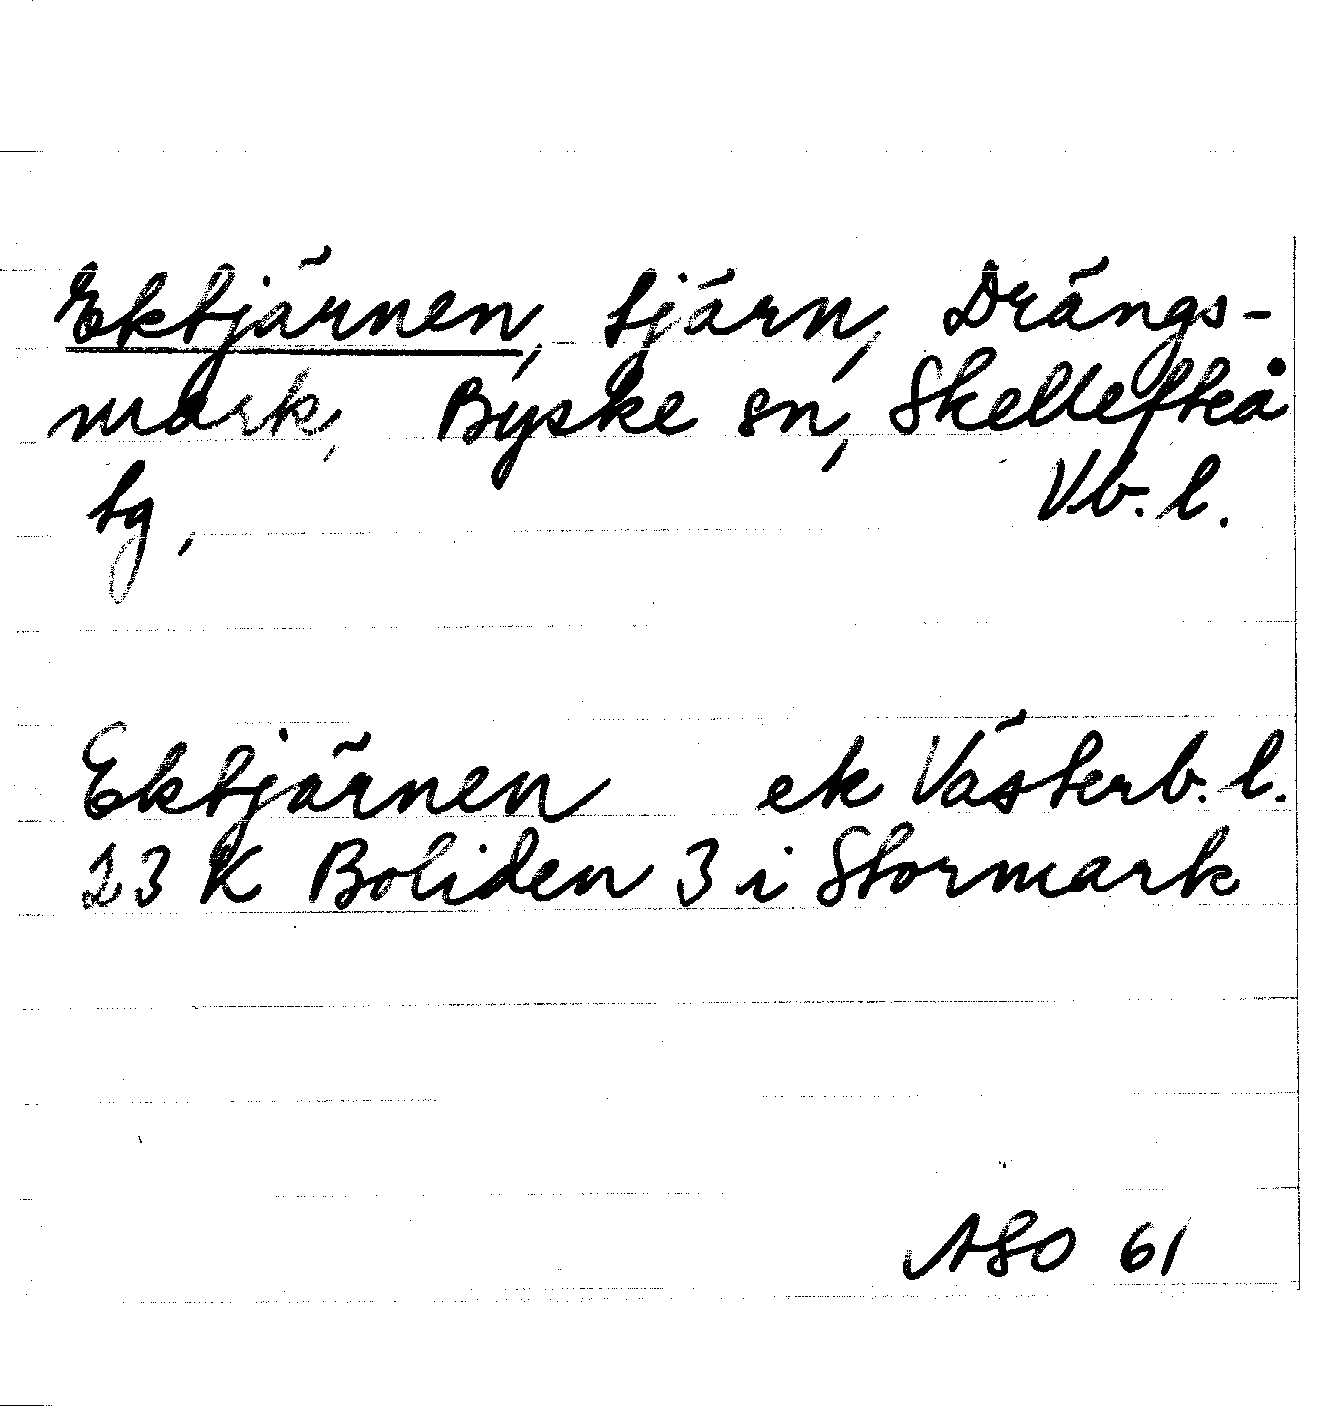 Ektjärnen, tjärn, Drängs-
mark, Byske sn, Skellefteå
tg, Vb. l.
Ektjärnen ek Västerb. l.
23 K Boliden 3 i Stormark
ASO 61